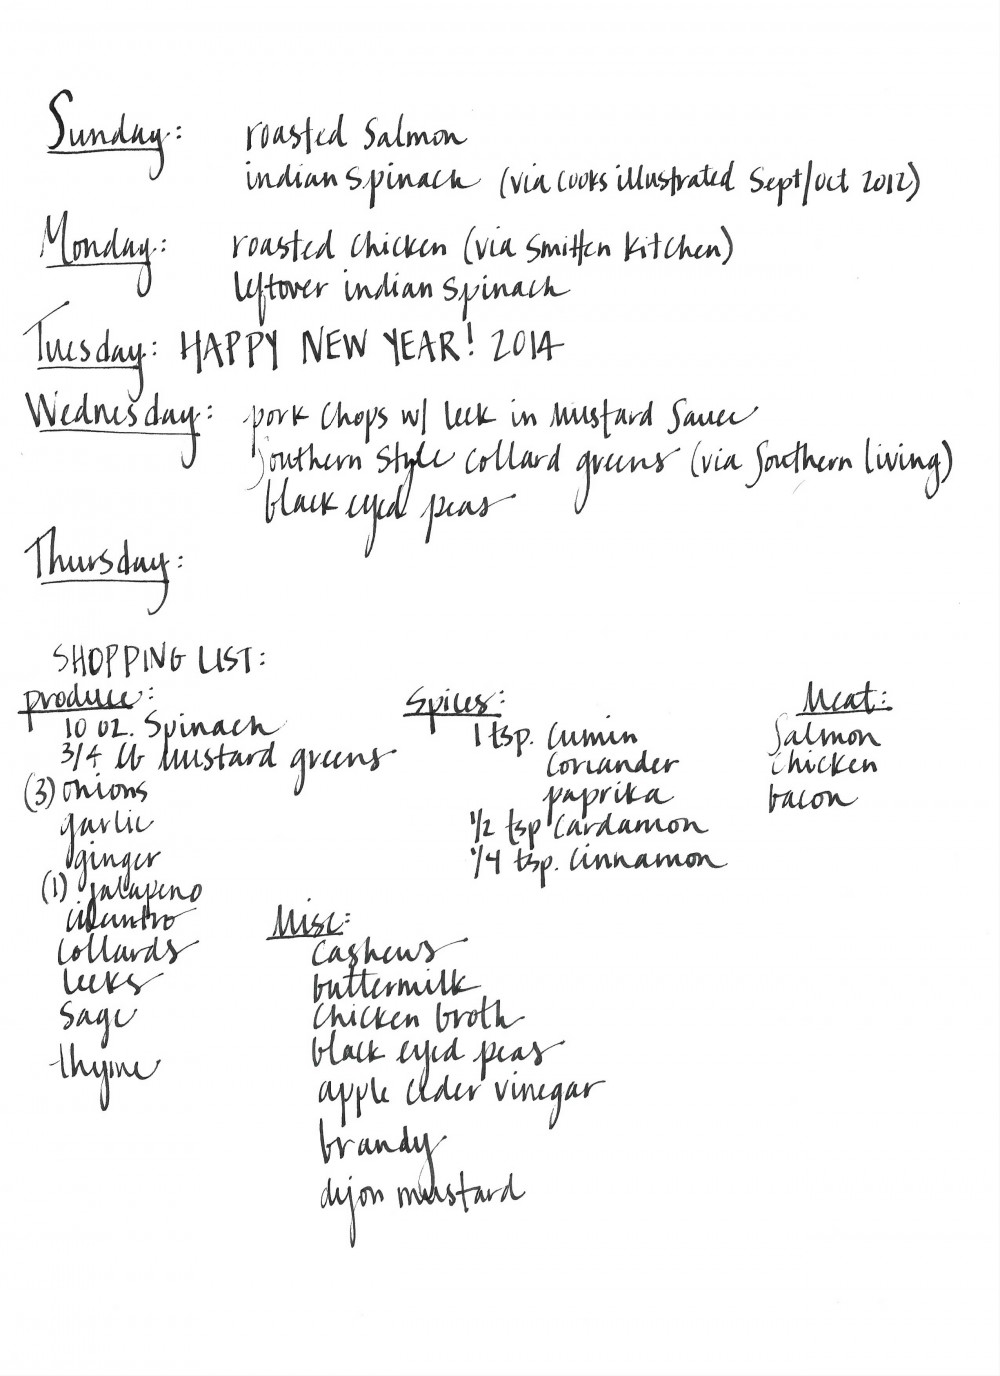 Sunday: roasted salmon
indian spinach (via cooks illustrated Sept/Oct 2012)
Monday: roasted chicken (via Smitten Kitchen)
leftover indian spinach
Tuesday: HAPPY NEW YEAR! 2014
Wednesday: pork chops w/ leek in mustard sauce
Southern style collard greens (via Southern living)
black eyed peas
Thursday:
SHOPPING LIST:
produce:
10 oz. Spinach
3/4 lb mustard greens
(3) onions
garlic
ginger
(1) jalapeno
cilantro
collards
leeks
sage
thyme
Spices:
1 tsp. cumin
coriander
paprika
1/2 tsp cardamon
1/4 tsp. cinnamon
Meat:
Salmon
chicken
bacon
Misc:
cashews
buttermilk
chicken broth
black eyed peas
apple cider vinegar
brandy
dijon mustard